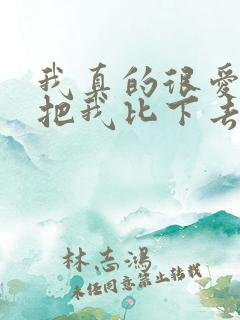 我真的很爱
把我比下去
林志鸿
未任同意禁止转载